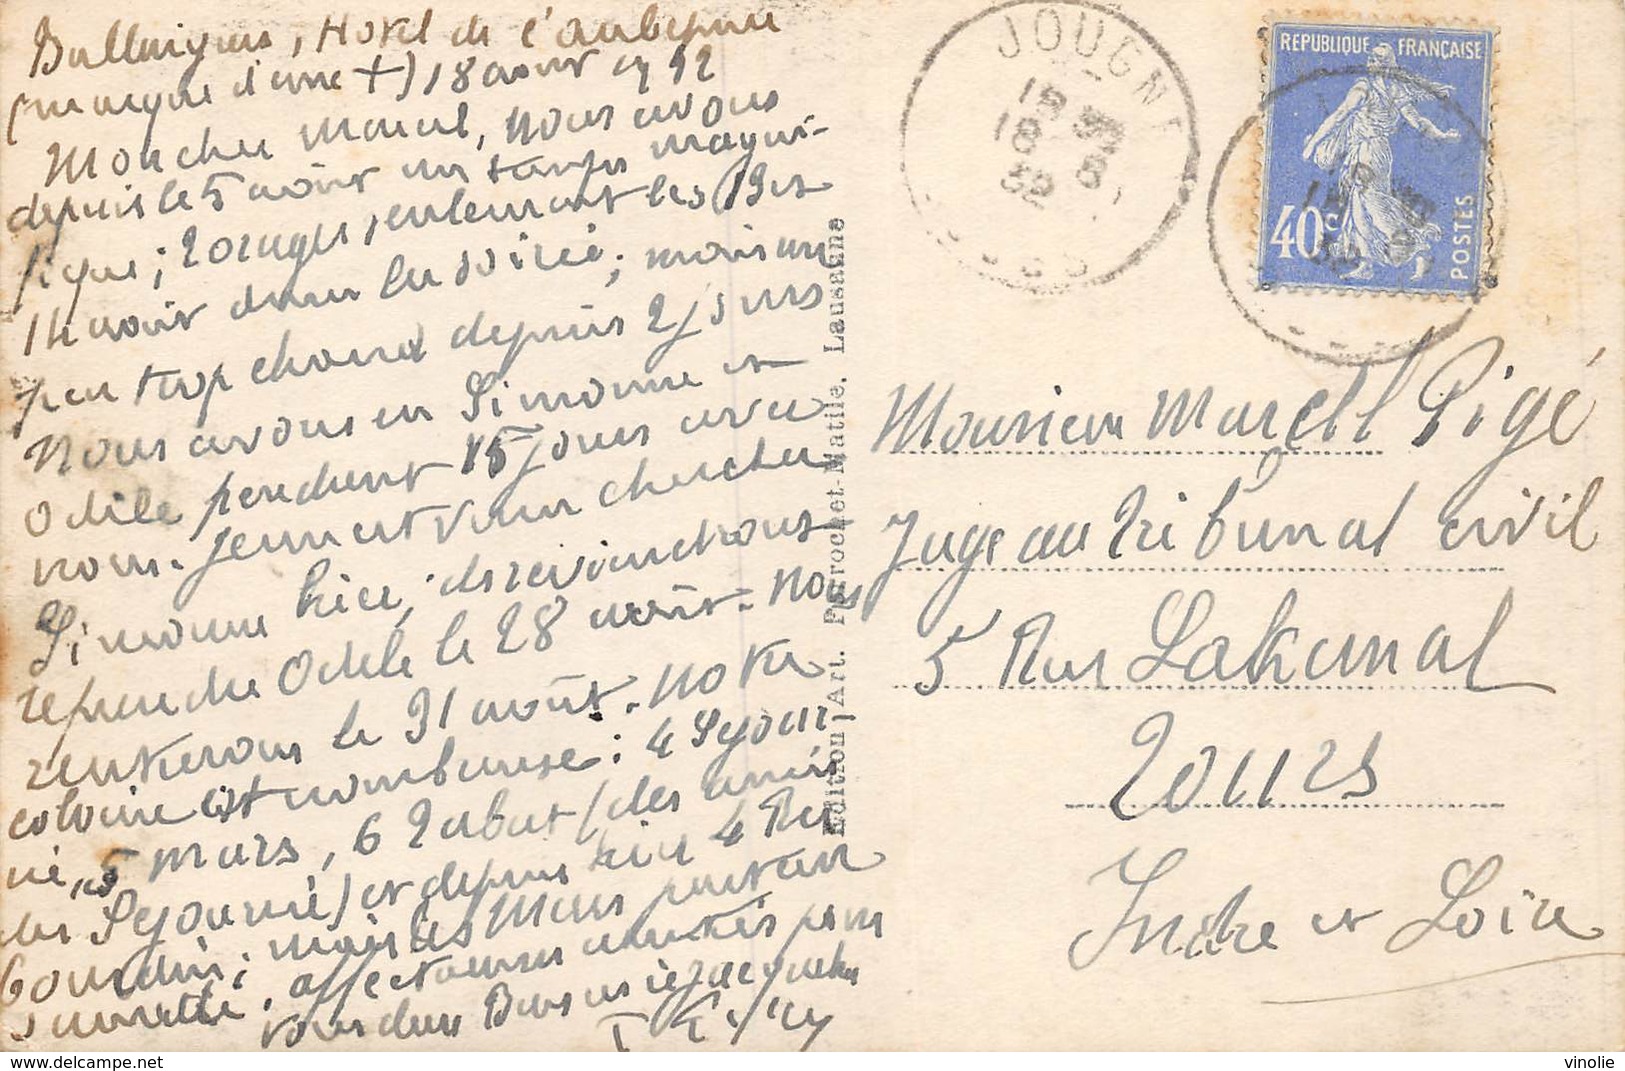 Ballaigues, Hotel de l'aubepine
(marqué d'une +) 18 aout 1932
Mon cher Marcel, nous avons
depuis le 5 août un temps magni-
fique; 2 orages seulement les 13 et
14 août dans la soirée; mais un
peu trop chaud depuis 2 jours
Nous avons eu Simonne et
Odile pendant 15 jours avec
nous. Jenn est venu chercher
Simonne hier; ils reviendront
reprendre Odile le 28 août. Nous
rentrerons le 31 août. Notre
colonie est nombreuse: 4 Séjour
né, 5 Mars, 6 Rabat (des amis
des Séjourné) et depuis hier 4
Bourdin; mais les Mars partent
affectueuses amitiés pour
vous deux
JOUGNE
18 8
32
REPUBLIQUE FRANÇAISE
40c
POSTES
Edition Art. Perrochet-Matile, Lausanne
Monsieur Marcell Pigé
Juge au Tribunal civil
5 Rue Lakanal
Tours
Indre et Loire
vinolie